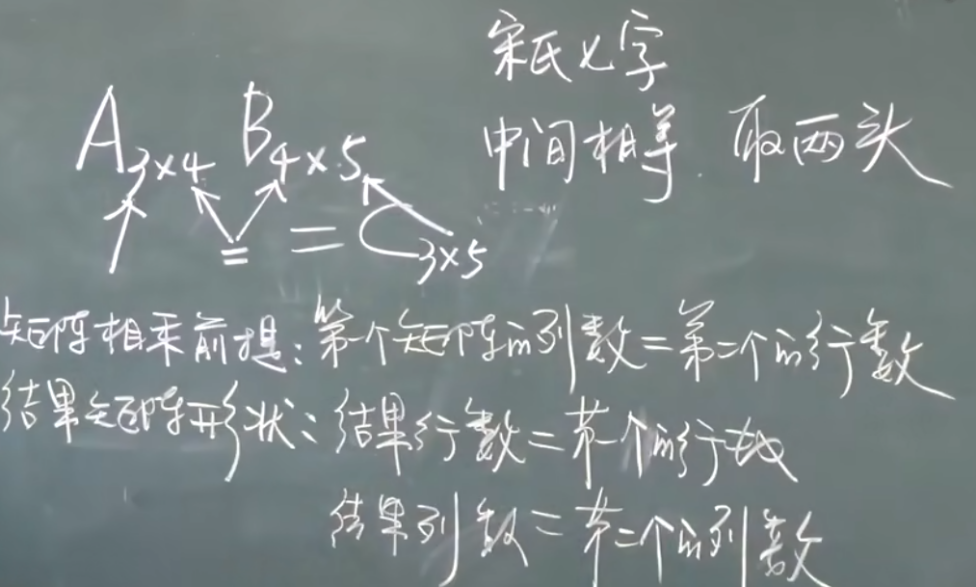 宋氏七字
中间相等 取两头
A₃ₓ₄ B₄ₓ₅ = C₃ₓ₅
=
矩阵相乘前提:第一个矩阵的列数=第二个的行数
结果矩阵形状:结果行数=第一个的行数
结果列数=第二个的列数